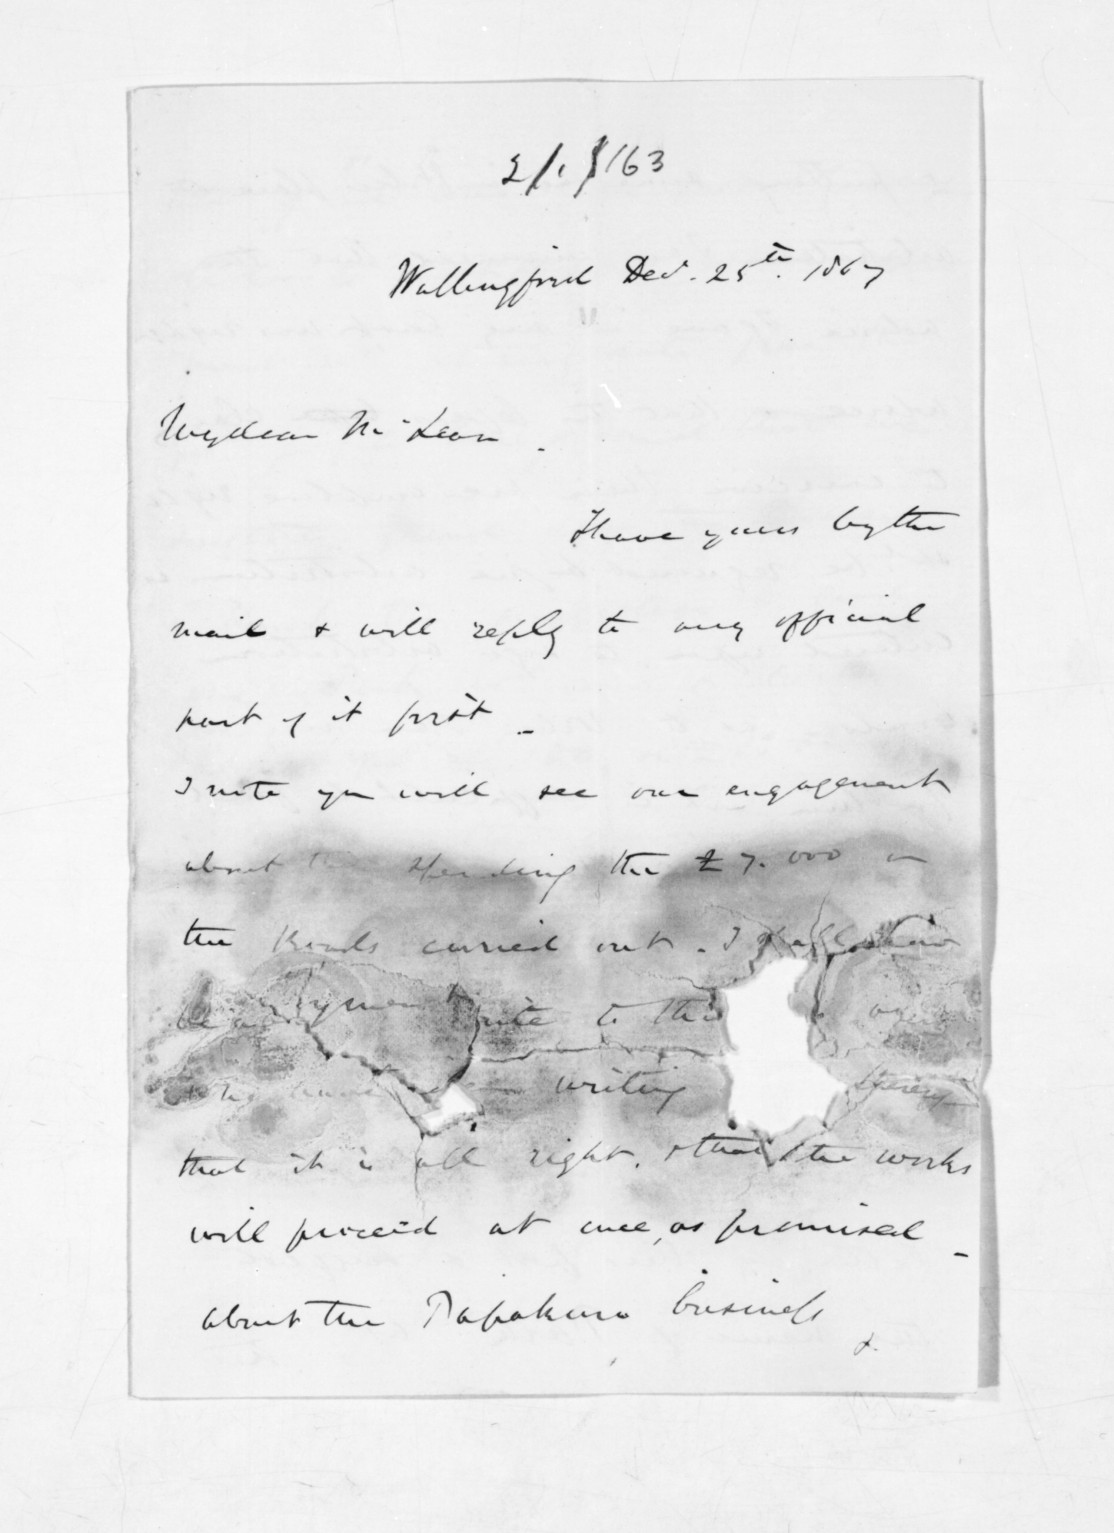 2/1/163
Wallingford Decr. 25th. 1867
My dear McLean.
I have yours by the
mail & will reply to any official
part of it first.
I note you will see our engagement
about the spending the £7.000 on
the Roads carried out. I shall
write to the
have writing
that it is all right, & that the works
will proceed at once, as promised.
about the Papakura business
&.